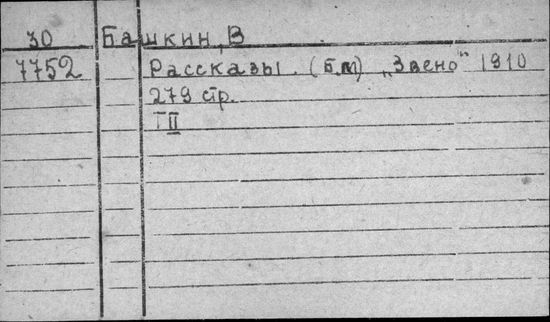 30 Башкин, В
7752 Рассказы. (б.м) „Звено" 1910
279 стр.